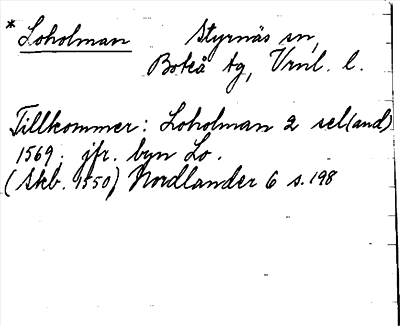 * Loholman Styrnäs sn,
Boteå tg, Vrnl. l.
Tillkommer: Loholman 2 sel(and)
1569. jfr. byn Lo.
(Skb. 1550) Nordlander 6 s. 198